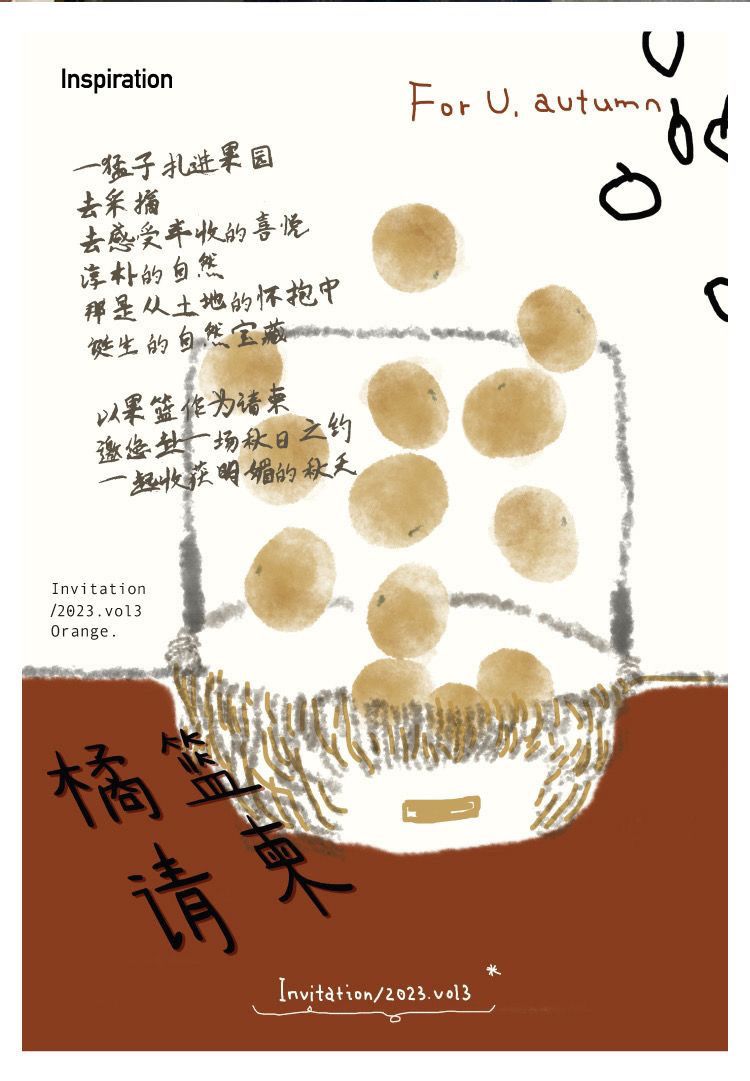 Inspiration
For U. autumn
一猛子扎进果园
去采摘
去感受丰收的喜悦
淳朴的自然
那是从土地的怀抱中
诞生的自然宝藏
以果篮作为请柬
邀您赴一场秋日之约
一起收获明媚的秋天
Invitation
/2023.vol3
Orange.
橘篮
请柬
Invitation/2023.vol3
*